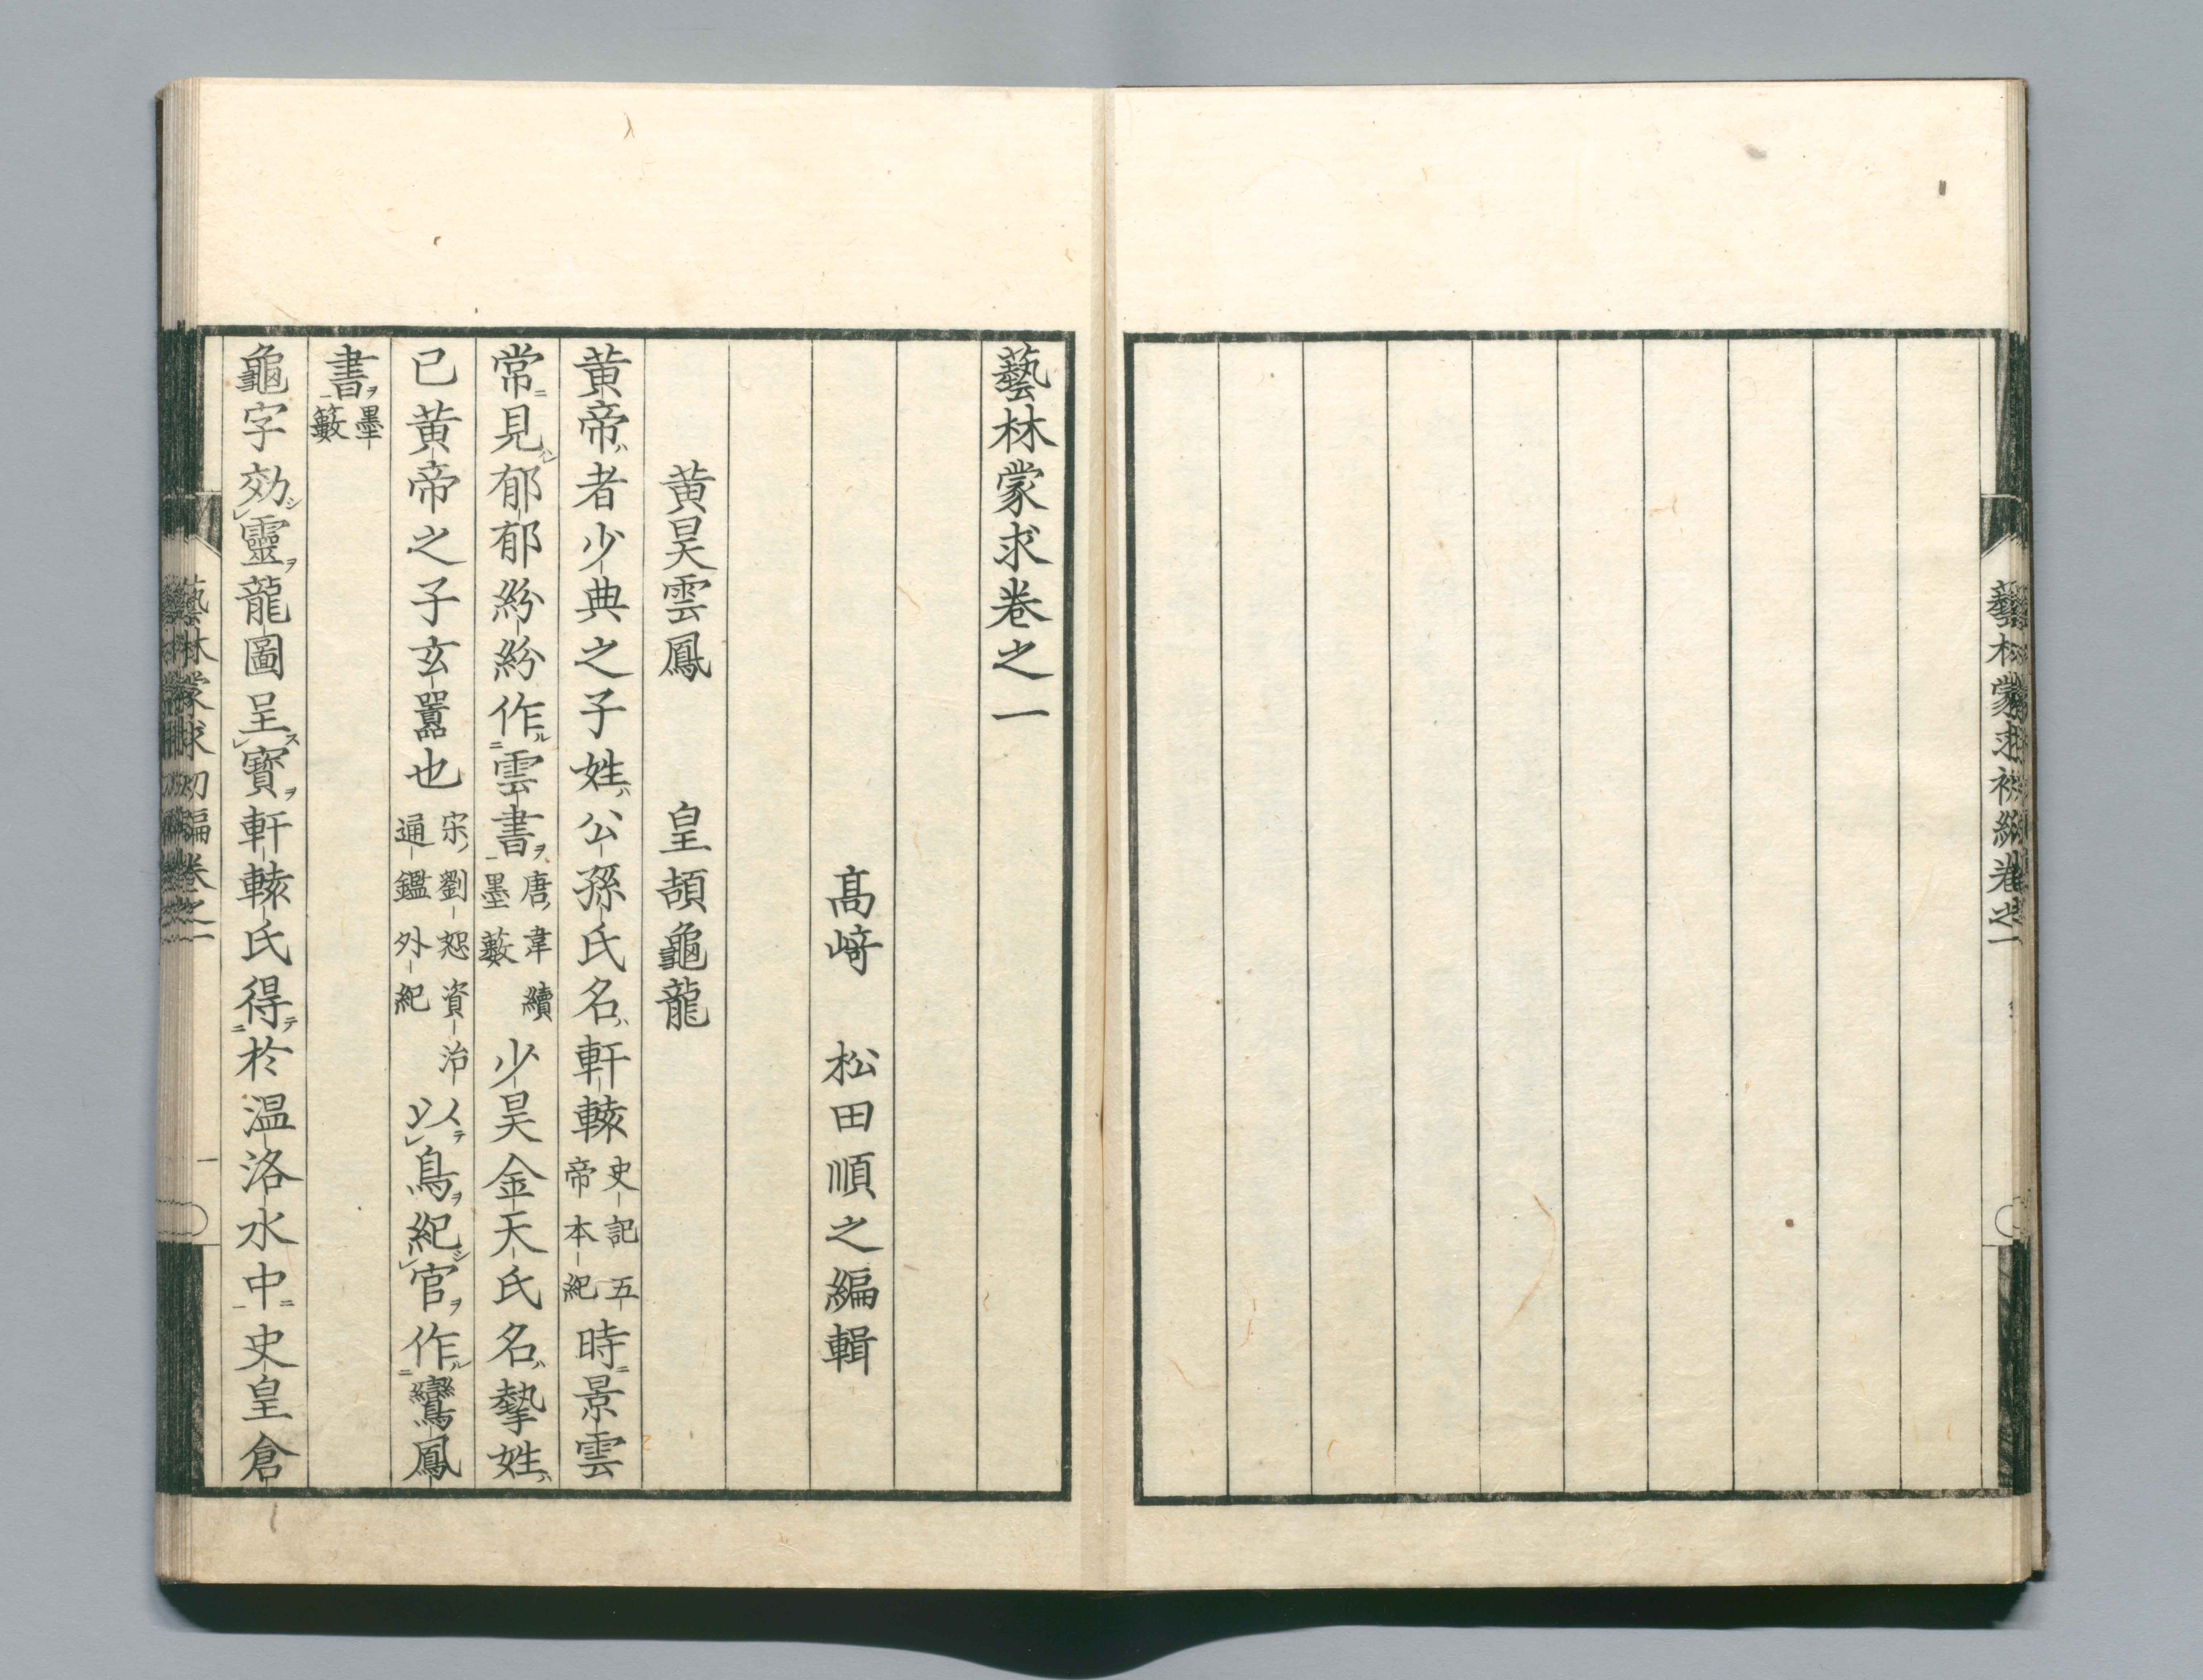 藝林蒙求初編卷之一
藝林蒙求卷之一
高﨑　松田順之編輯
黄昊雲鳳　　皇頡龜龍
黄帝ハ者少典之子姓ハ公孫氏名ハ軒轅史記五帝本紀時ニ景雲
常ニ見郁郁紛紛作ル雲書ヲ唐ノ韋續墨藪少昊金天氏名ハ摯姓ハ
已黄帝之子玄囂也宋ノ劉恕資治通鑑外紀以テ鳥ヲ紀シ官ヲ作ル鸞鳳
書ヲ墨藪
龜字効シ靈ヲ龍圖呈ス寶ヲ軒轅氏得テ於温洛水中ニ史皇倉
藝林蒙求初編卷之一
一